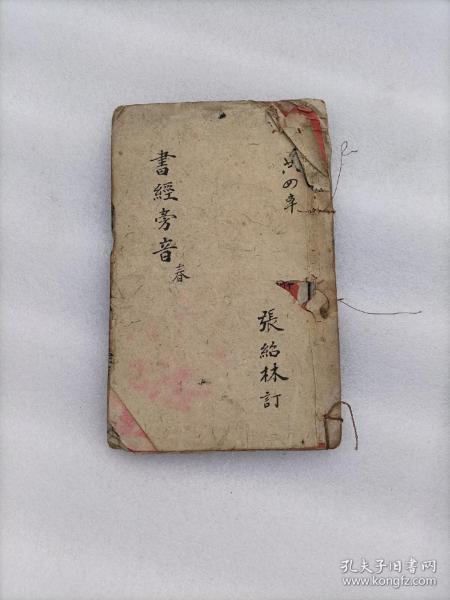 廿四年
張紹林訂
書經旁音
春
孔夫子旧书网
www.kongfz.com